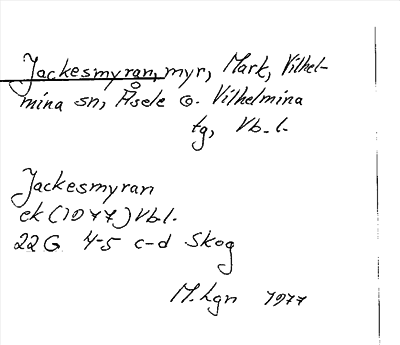 Jackesmyran, myr, Mark, Vilhel-
mina sn, Åsele o. Vilhelmina
tg, Vb. l.
Jackesmyran
ek (1977) Vbl.
22 G 4-5 c-d Skog
M. Lgn 1977